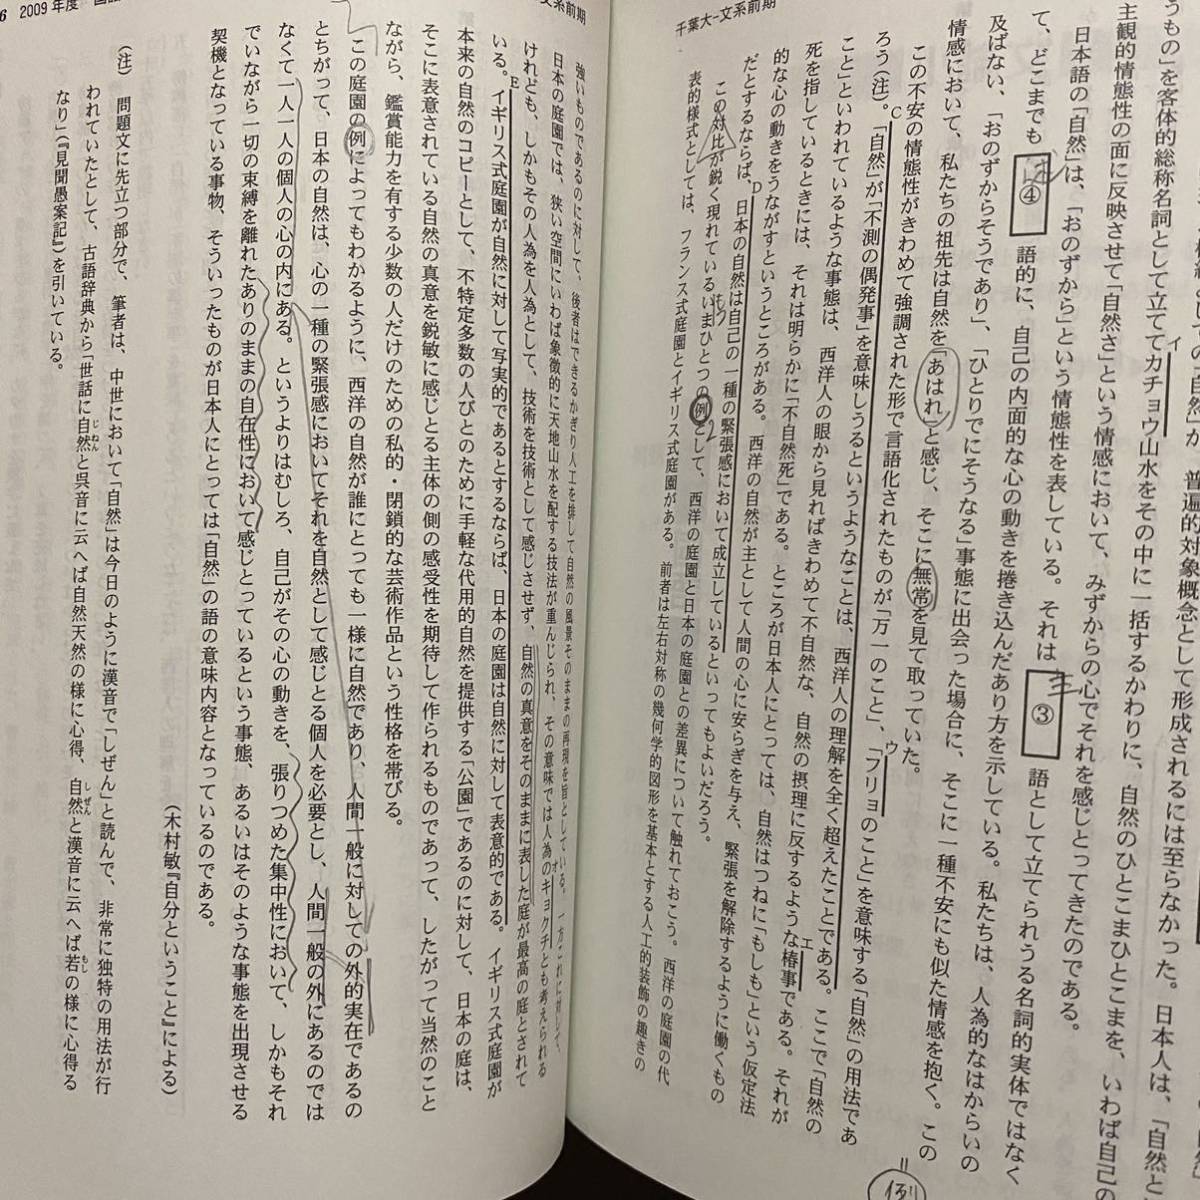 千葉大-文系前期
うもの」を客体的総称名詞として立ててカチョウ山水をその中に一括するかわりに、自然のひとこまひとこまを、いわば自己の
主観的情態性の面に反映させて「自然さ」という情感において、みずからの心でそれを感じとってきたのである。
日本語の「自然」は、「おのずから」という情態性を表している。それは③語として立てられうる名詞的実体ではなく
て、どこまでも④語的に、自己の内面的な心の動きを捲き込んだあり方を示している。私たちは、人為的なはからいの
及ばない、「おのずからそうであり」、「ひとりでにそうなる」事態に出会った場合に、そこに一種不安にも似た情感を抱く。この
情感において、私たちの祖先は自然を「あはれ」と感じ、そこに無常を見て取っていた。
この不安の情態性がきわめて強調された形で言語化されたものが「万一のこと」、「フリョのこと」を意味する「自然」の用法であ
ろう(注)。「自然」が「不測の偶発事」を意味しうるというようなことは、西洋人の理解を全く超えたことである。ここで「自然の
こと」といわれているような事態は、西洋人の眼から見ればきわめて不自然な、自然の摂理に反するような椿事である。それが
死を指しているときには、それは明らかに「不自然死」である。ところが日本人にとっては、自然はつねに「もしも」という仮定法
的な心の動きをうながすというところがある。西洋の自然が主として人間の心に安らぎを与え、緊張を解除するように働くもの
だとするならば、日本の自然は自己の一種の緊張感において成立しているといってもよいだろう。
この対比が鋭く現れているいまひとつの例として、西洋の庭園と日本の庭園との差異について触れておこう。西洋の庭園の代
表的様式としては、フランス式庭園とイギリス式庭園がある。前者は左右対称の幾何学的図形を基本とする人工的装飾の趣きの
例
2009年度
文系前期
強いものであるのに対して、後者はできるかぎり人工を排して自然の風景そのままの再現を旨としている。一方これに対して、
日本の庭園では、狭い空間にいわば象徴的に天地山水を配する技法が重んじられ、その意味では人為のキョクチとも考えられる
けれども、しかもその人為を人為として、技術を技術として感じさせず、自然の真意をそのままに表した庭が最高の庭とされて
いる。イギリス式庭園が自然に対して写実的であるとするならば、日本の庭園は自然に対して表意的である。イギリス式庭園が
本来の自然のコピーとして、不特定多数の人びとのために手軽な代用的自然を提供する「公園」であるのに対して、日本の庭は、
そこに表意されている自然の真意を鋭敏に感じとる主体の側の感受性を期待して作られるものであって、したがって当然のこと
ながら、鑑賞能力を有する少数の人だけのための私的・閉鎖的な芸術作品という性格を帯びる。
この庭園の例によってもわかるように、西洋の自然が誰にとっても一様に自然であり、人間一般に対しての外的実在であるの
とちがって、日本の自然は、心の一種の緊張感においてそれを自然として感じとる個人を必要とし、人間一般の外にあるのでは
なくて一人一人の個人の心の内にある。というよりはむしろ、自己がその心の動きを、張りつめた集中性において、しかもそれ
でいながら一切の束縛を離れたありのままの自在性において感じとっているという事態、あるいはそのような事態を出現させる
契機となっている事物、そういったものが日本人にとっては「自然」の語の意味内容となっているのである。
(木村敏『自分ということ』による)
(注) 問題文に先立つ部分で、筆者は、中世において「自然」は今日のように漢音で「しぜん」と読んで、非常に独特の用法が行
われていたとして、古語辞典から「世話に自然と呉音に云へば自然天然の様に心得、自然と漢音に云へば若の様に心得る
なり」(『見聞愚案記』)を引いている。